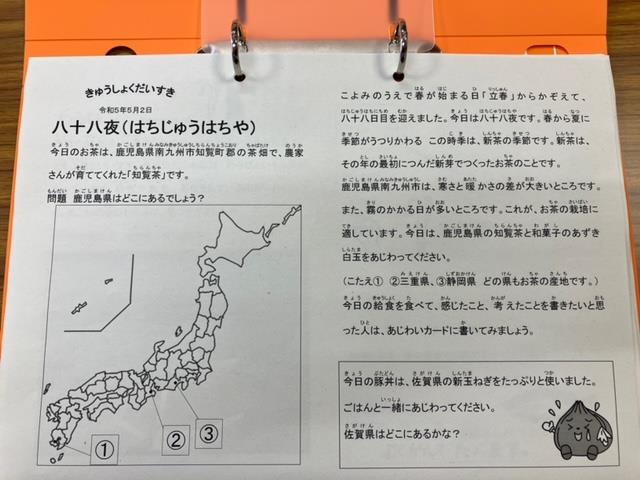 きゅうしょくだいすき
令和5年5月2日
八十八夜(はちじゅうはちや)
今日のお茶は、鹿児島県南九州市知覧町郡の茶畑で、農家
さんが育ててくれた「知覧茶」です。
問題 鹿児島県はどこにあるでしょう?
①
②
③
こよみのうえで春が始まる日「立春」からかぞえて、
八十八日目を迎えました。今日は八十八夜です。春から夏に
季節がうつりかわる この時季は、新茶の季節です。新茶は、
その年の最初につんだ新芽でつくったお茶のことです。
鹿児島県南九州市は、寒さと暖かさの差が大きいところです。
また、霧のかかる日が多いところです。これが、お茶の栽培に
適しています。今日は、鹿児島県の知覧茶と和菓子のあずき
白玉をあじわってください。
(こたえ① ②三重県、③静岡県 どの県もお茶の産地です。)
今日の給食を食べて、感じたこと、考えたことを書きたいと思
った人は、あじわいカードに書いてみましょう。
今日の豚丼は、佐賀県の新玉ねぎをたっぷりと使いました。
ごはんと一緒にあじわってください。
佐賀県はどこにあるかな?